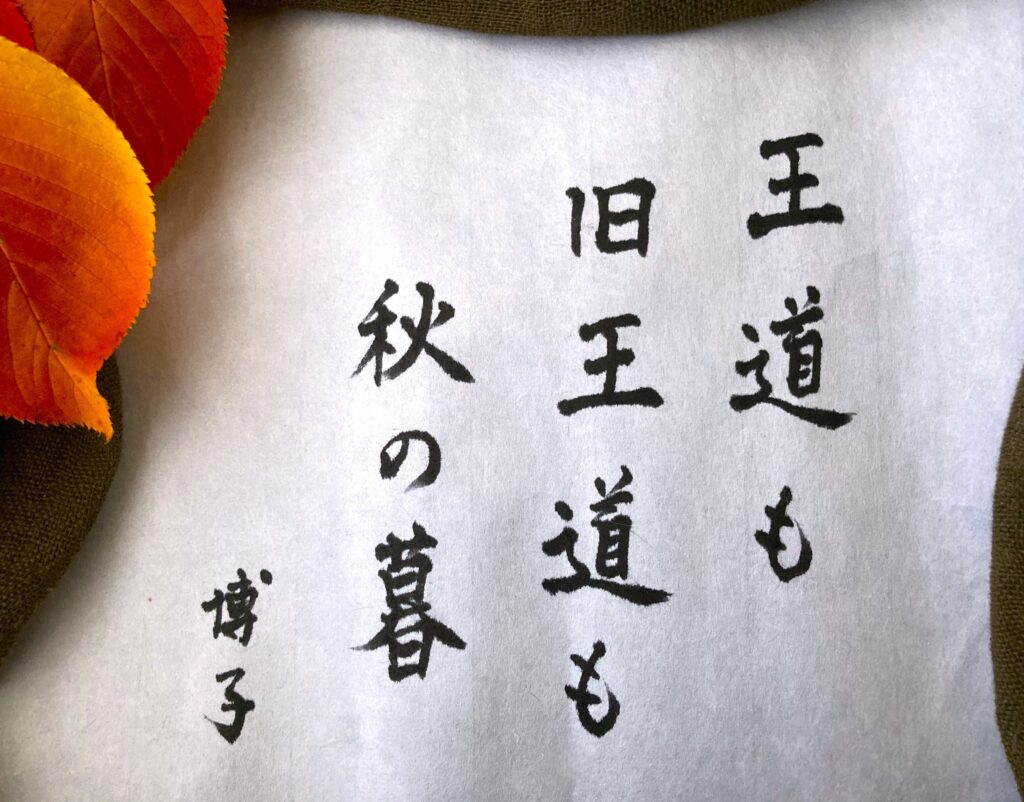 王道も
旧王道も
秋の暮
博子